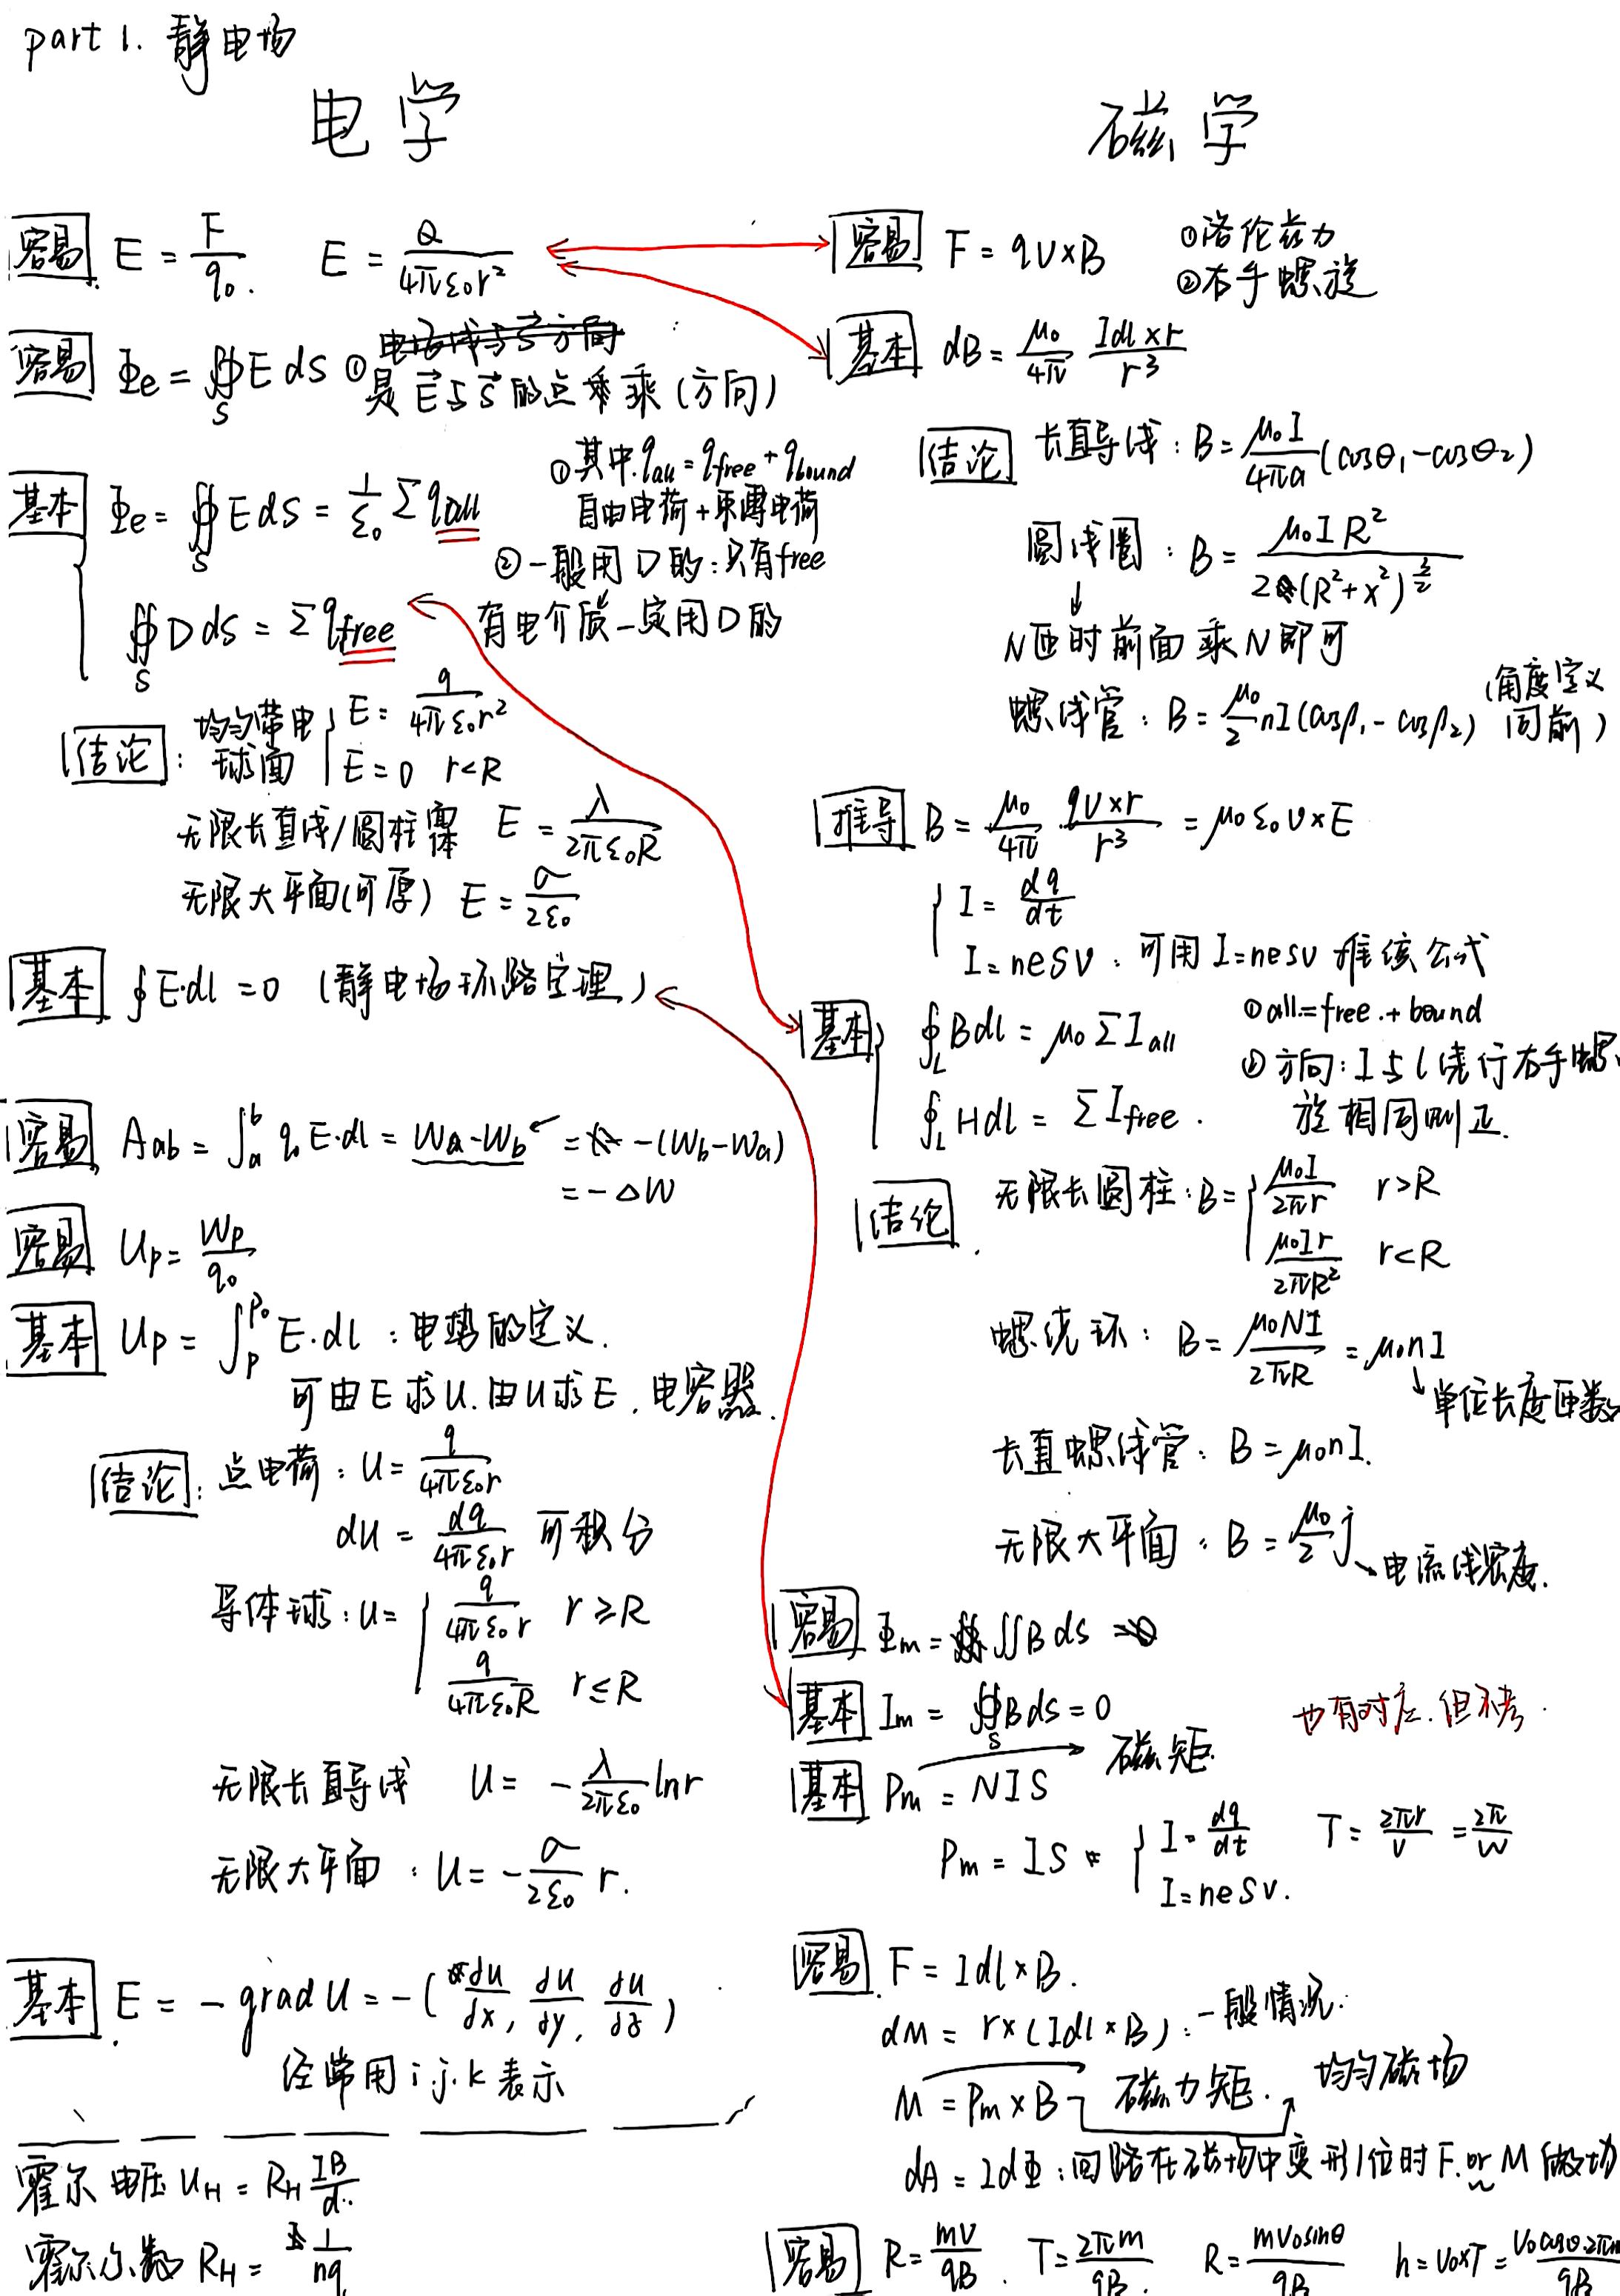 part 1. 静电场
电学
容易 E = F/q₀. E = Q/4πε₀r²
容易 Φe = ∯_S E dS ① 是 E⃗与S⃗的点乘 (方向)
基本 Φe = ∯_S E dS = 1/ε₀ Σq_all
①其中 q_all = q_free + q_bound
自由电荷+束缚电荷
②一般用D的:只有free
∯_S D dS = Σq_free
有电介质一定用D的
结论: 均匀带电球面 { E = q/4πε₀r²
E = 0 r<R
无限长直线/圆柱体 E = λ/2πε₀R
无限大平面(可厚) E = σ/2ε₀
基本 ∮E·dl = 0 (静电场环路定理)
容易 Aab = ∫_a^b q₀E·dl = Wa-Wb = -(Wb-Wa)
= -ΔW
容易 Up = Wp/q₀
基本 Up = ∫_p^p₀ E·dl : 电势的定义.
可由E求U.由U求E.电容器.
结论: 点电荷: U = q/4πε₀r
dU = dq/4πε₀r 可积分
导体球: U = { q/4πε₀r r≥R
q/4πε₀R r≤R
无限长直导线 U = -λ/2πε₀ lnr
无限大平面: U = -σ/2ε₀ r.
基本 E = -grad U = -(∂u/∂x, ∂u/∂y, ∂u/∂z)
经常用 i.j.k 表示
霍尔电压 U_H = R_H IB/d
霍尔系数 R_H = 1/nq
磁学
容易 F = qv×B ①洛伦兹力
②右手螺旋
基本 dB = μ₀/4π Idl×r/r³
结论 长直导线: B = μ₀I/4πa (cosθ₁-cosθ₂)
圆线圈: B = μ₀IR²/2(R²+x²)^(3/2)
↓
N匝时前面乘N即可
螺线管: B = μ₀/2 nI(cosβ₁-cosβ₂) (角度定义同前)
推导 B = μ₀/4π qv×r/r³ = μ₀ε₀v×E
{ I = dq/dt
I = neSv: 可用 I=nesv 推该公式
基本 { ∮_L B dl = μ₀ΣI_all ①all=free.+bound
∮_L H dl = ΣI_free. ②方向: I与l绕行右手螺旋相同则正.
结论. 无限长圆柱: B = { μ₀I/2πr r>R
μ₀Ir/2πR² r<R
螺绕环: B = μ₀NI/2πR = μ₀nI
↓单位长度匝数
长直螺线管: B = μ₀nI.
无限大平面: B = μ₀/2 j →电流线密度.
容易 Φm = ∬B dS
基本 Im = ∯_S B dS = 0
也有对应.但不考.
基本 Pm = NIS → 磁矩
Pm = IS { I = dq/dt T = 2πr/v = 2π/w
I = neSv.
容易. F = Idl×B.
dM = r×(Idl×B): 一般情况.
M = Pm×B 磁力矩. 均匀磁场
dA = IdΦ: 回路在磁场中变形/位时 F.or M 做功
容易 R = mv/qB. T = 2πm/qB. R = mv₀sinθ/qB h = v₀xT = v₀cosθ·2πm/qB